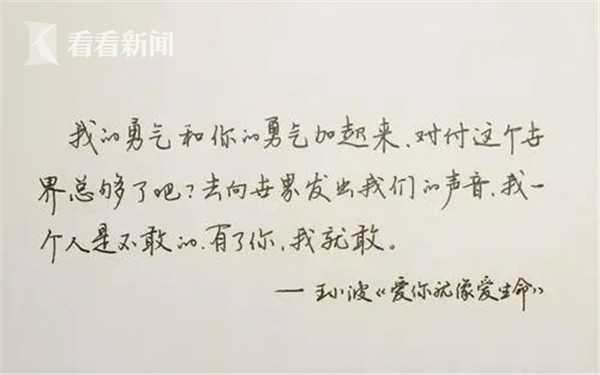 看看新闻
我的勇气和你的勇气加起来、对付这个世
界总够了吧?去向世界发出我们的声音、我一
个人是不敢的、有了你、我就敢。
— 王小波《爱你就像爱生命》